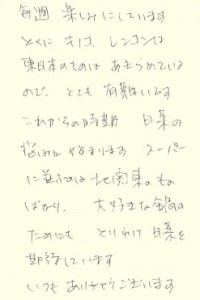 毎週 楽しみにしています
とくに キノコ、レンコンは
東日本のものは あきらめている
ので、とても 有難いです
これからの時期 白菜の
悩みに なります スーパー
に並ぶのは 北関東のもの
ばかり、 大好きな
ためにも とりわけ 白菜を
期待しています
いつも ありがとうございます